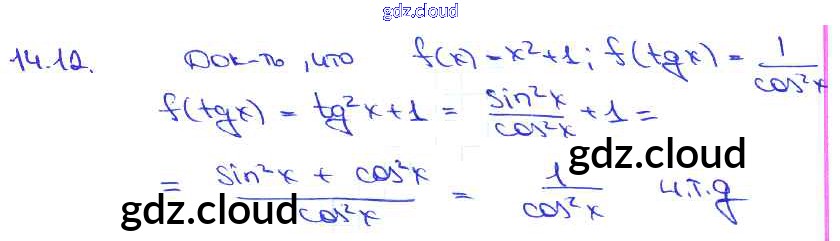 gdz.cloud
14.12. Док-ть, что f(x) = x²+1; f(tgx) = 1/cos²x
f(tgx) = tg²x+1 = sin²x/cos²x + 1 =
gdz.cloud
= (sin²x + cos²x)/cos²x = 1/cos²x ч.т.д
gdz.cloud